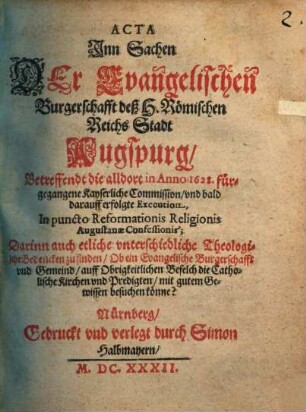 2.
ACTA
Inn Sachen
DEr Evangelischen
Burgerschafft deß H. Römischen
Reichs Stadt
Augspurg/
Betreffendt die alldort in Anno 1628. für-
gegangene Kayserliche Commission/ vnd bald
darauff erfolgte Execution,
In puncto Reformationis Religionis
Augustanæ Confessionis;
Darinn auch etliche vnterschiedliche Theologi-
sche Bedencken zu finden/ Ob ein Evangelische Burgerschafft
vnd Gemeind/ auff Obrigkeitlichen Befelch die Catho-
lische Kirchen vnd Predigten/ mit gutem Ge-
wissen besuchen könne?
Nürnberg/
Gedruckt vnd verlegt durch Simon
Halbmayern/
M. DC. XXXII.